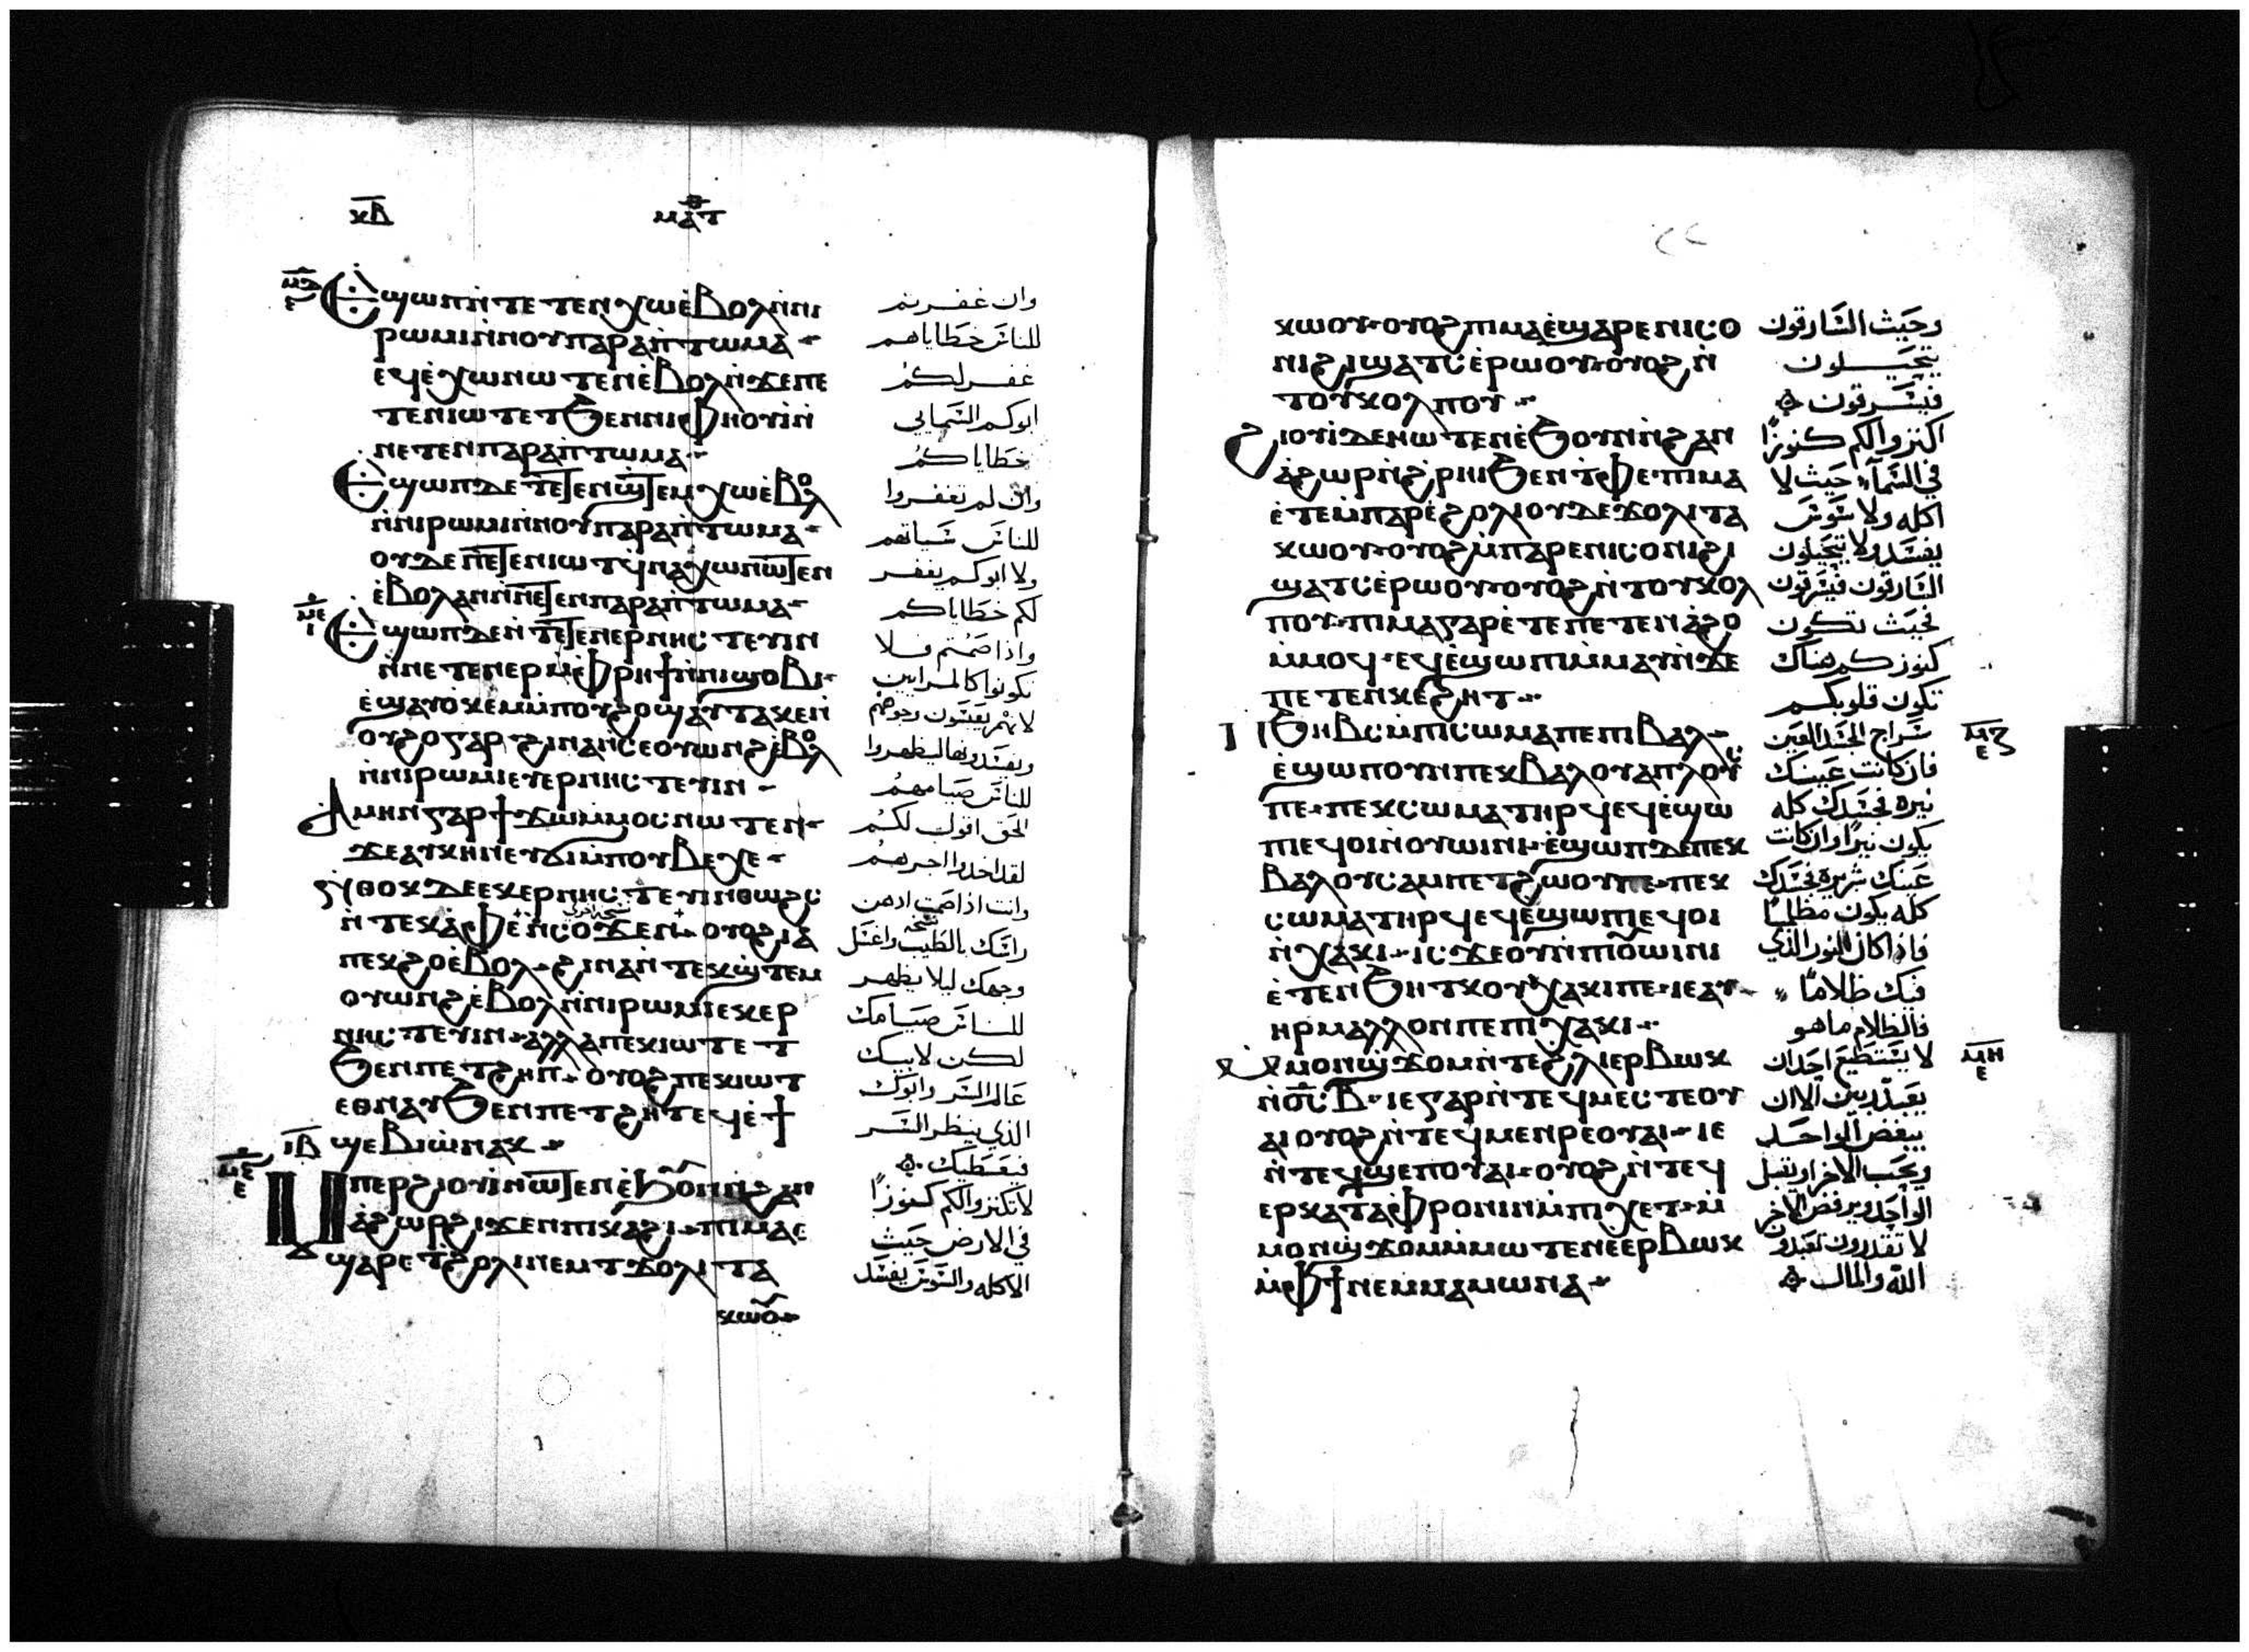 ⲕⲃ ⲙⲁⲧ
ⲉϣⲱⲡ ⲛⲧⲉⲧⲉⲛⲭⲱ ⲉⲃⲟⲗ ⲛⲛⲓ
ⲣⲱⲙⲓ ⲛⲛⲟⲩⲡⲁⲣⲁⲡⲧⲱⲙⲁ
ⲉϥⲉⲭⲱ ⲛⲱⲧⲉⲛ ⲉⲃⲟⲗ ⲛϫⲉ ⲡⲉ
ⲧⲉⲛⲓⲱⲧ ⲉⲧϧⲉⲛ ⲛⲓⲫⲏⲟⲩⲓ ⲛ
ⲛⲉⲧⲉⲛⲡⲁⲣⲁⲡⲧⲱⲙⲁ
ⲉϣⲱⲡ ⲇⲉ ⲧⲉⲧⲉⲛϣⲧⲉⲙⲭⲱ ⲉⲃⲟⲗ
ⲛⲛⲓⲣⲱⲙⲓ ⲛⲛⲟⲩⲡⲁⲣⲁⲡⲧⲱⲙⲁ
ⲟⲩⲇⲉ ⲡⲉⲧⲉⲛⲓⲱⲧ ϥⲛⲁⲭⲱ ⲛⲱⲧⲉⲛ
ⲉⲃⲟⲗ ⲁⲛ ⲛⲛⲉⲧⲉⲛⲡⲁⲣⲁⲡⲧⲱⲙⲁ
ⲉϣⲱⲡ ⲇⲉ ⲛⲧⲉⲧⲉⲛⲉⲣⲛⲏⲥⲧⲉⲩⲓⲛ
ⲛⲛⲉⲧⲉⲛⲉⲣ ⲙⲫⲣⲏϯ ⲛⲛⲓϣⲟⲃⲓ
ⲉϣⲁⲩⲟⲕⲉⲙ ⲙⲡⲟⲩϩⲟ ϣⲁⲩⲧⲁⲕⲉ ⲛ
ⲟⲩϩⲟ ⲅⲁⲣ ϩⲓⲛⲁ ⲛⲥⲉⲟⲩⲱⲛϩ ⲉⲃⲟⲗ
ⲛⲛⲓⲣⲱⲙⲓ ⲉⲩⲉⲣⲛⲏⲥⲧⲉⲩⲓⲛ
ⲁⲙⲏⲛ ⲅⲁⲣ ϯϫⲱ ⲙⲙⲟⲥ ⲛⲱⲧⲉⲛ
ϫⲉ ⲁⲩⲕⲏⲛ ⲉⲩϭⲓ ⲙⲡⲟⲩⲃⲉⲭⲉ
ⲛⲑⲟⲕ ⲇⲉ ⲉⲕⲉⲣⲛⲏⲥⲧⲉⲩⲓⲛ ⲑⲱϩⲥ
ⲛⲧⲉⲕⲁⲫⲉ ⲛⲥⲟϫⲉⲛ ⲟⲩⲟϩ ⲓⲁ
ⲡⲉⲕϩⲟ ⲉⲃⲟⲗ ϩⲓⲛⲁ ⲛⲧⲉⲕϣⲧⲉⲙ
ⲟⲩⲱⲛϩ ⲉⲃⲟⲗ ⲛⲛⲓⲣⲱⲙⲓ ⲉⲕⲉⲣ
ⲛⲏⲥⲧⲉⲩⲓⲛ ⲁⲗⲗⲁ ⲡⲉⲕⲓⲱⲧ ⲉⲧ
ϧⲉⲛ ⲡⲉⲧϩⲏⲡ ⲟⲩⲟϩ ⲡⲉⲕⲓⲱⲧ
ⲉⲑⲛⲁⲩ ϧⲉⲛ ⲡⲉⲧϩⲏⲡ ⲉϥⲉϯ
ⲓⲃ ϣⲉⲃⲓⲱ ⲛⲁⲕ
ⲙⲡⲉⲣϩⲓⲟⲩⲓ ⲛⲱⲧⲉⲛ ⲉϧⲟⲩⲛ ⲛϩⲁⲛ
ⲁϩⲱⲣ ϩⲓϫⲉⲛ ⲡⲓⲕⲁϩⲓ ⲡⲓⲙⲁ ⲉ
ϣⲁⲣⲉ ϯϩⲟⲗⲓ ⲛⲉⲙ ϯϫⲟⲗⲓ ⲧⲁ
ⲕⲱⲟⲩ
وان غفرتم
للناس خطاياهم
غفر لكم
ابوكم السمايي
خطاياكم
وان لم تغفروا
للناس سياتهم
ولا ابوكم يغفر
لكم خطاياكم
واذا صمتم فلا
تكونوا كالمرايين
لانهم يعبسون وجوههم
ويفسدونها ليظهروا
للناس صيامهم
الحق اقول لكم
لقد اخدوا اجرهم
وانت اذا صمت ادهن
راسك بالطيب واغسل
وجهك ليلا يظهر
للناس صيامك
لكن لابيك
عالم السر وابوك
الذي ينظر السر
فيعطيك
لا تكنزوا لكم كنوزًا
في الارض حيث
الاكله والسوس يفسد
ⲕⲱⲟⲩ ⲟⲩⲟϩ ⲡⲓⲙⲁ ⲉϣⲁⲣⲉ ⲛⲓⲥⲟ
ⲛⲓ ϩⲓ ϣⲁⲧⲥ ⲉⲣⲱⲟⲩ ⲟⲩⲟϩ ⲛ
ⲧⲟⲩⲕⲟⲗⲡⲟⲩ
ϩⲓⲟⲩⲓ ⲇⲉ ⲛⲱⲧⲉⲛ ⲉϧⲟⲩⲛ ⲛϩⲁⲛ
ⲁϩⲱⲣ ⲛϩⲣⲏⲓ ϧⲉⲛ ⲧⲫⲉ ⲡⲓⲙⲁ
ⲉⲧⲉ ⲙⲡⲁⲣⲉ ϩⲟⲗⲓ ⲟⲩⲇⲉ ϫⲟⲗⲓ ⲧⲁ
ⲕⲱⲟⲩ ⲟⲩⲟϩ ⲙⲡⲁⲣⲉ ⲛⲓⲥⲟⲛⲓ ϩⲓ
ϣⲁⲧⲥ ⲉⲣⲱⲟⲩ ⲟⲩⲟϩ ⲛⲧⲟⲩⲕⲟⲗ
ⲡⲟⲩ ⲡⲓⲙⲁ ⲅⲁⲣ ⲉⲧⲉ ⲡⲉⲧⲉⲛⲁϩⲟ
ⲙⲙⲟϥ ⲉϥⲉϣⲱⲡⲓ ⲙⲙⲁⲩ ⲛϫⲉ
ⲡⲉⲧⲉⲛⲕⲉϩⲏⲧ
ⲡⲓϧⲏⲃⲥ ⲙⲡⲓⲥⲱⲙⲁ ⲡⲉ ⲡⲓⲃⲁⲗ
ⲉϣⲱⲡ ⲟⲩⲛ ⲡⲉⲕⲃⲁⲗ ⲟⲩⲁⲡⲗⲟⲩⲥ
ⲡⲉ ⲡⲉⲕⲥⲱⲙⲁ ⲧⲏⲣϥ ⲉϥⲉϣⲱ
ⲡⲓ ⲉϥⲟⲓ ⲛⲟⲩⲱⲓⲛⲓ ⲉϣⲱⲡ ⲇⲉ ⲡⲉⲕ
ⲃⲁⲗ ⲟⲩⲥⲁⲙⲡⲉⲧϩⲱⲟⲩ ⲡⲉ ⲡⲉⲕ
ⲥⲱⲙⲁ ⲧⲏⲣϥ ⲉϥⲉϣⲱⲡⲓ ⲉϥⲟⲓ
ⲛⲭⲁⲕⲓ ⲓⲥϫⲉ ⲟⲩⲛ ⲡⲓⲟⲩⲱⲓⲛⲓ
ⲉⲧⲉⲛϧⲏⲧⲕ ⲟⲩⲭⲁⲕⲓ ⲡⲉ ⲓⲉ ⲁⲩ
ⲏⲣ ⲙⲁⲗⲗⲟⲛ ⲡⲉ ⲡⲓⲭⲁⲕⲓ
ⲙⲙⲟⲛ ϣϫⲟⲙ ⲛⲧⲉ ϩⲗⲓ ⲉⲣⲃⲱⲕ
ⲛϭⲥ ⲃ ⲓⲉ ⲅⲁⲣ ⲛⲧⲉϥⲙⲉⲥⲧⲉ ⲟⲩ
ⲁⲓ ⲟⲩⲟϩ ⲛⲧⲉϥⲙⲉⲛⲣⲉ ⲟⲩⲁⲓ ⲓⲉ
ⲛⲧⲉϥϣⲉⲡ ⲟⲩⲁⲓ ⲟⲩⲟϩ ⲛⲧⲉϥ
ⲉⲣⲕⲁⲧⲁⲫⲣⲟⲛⲓⲛ ⲙⲡⲓⲭⲉⲧ ⲙ
ⲙⲟⲛ ϣϫⲟⲙ ⲙⲙⲱⲧⲉⲛ ⲉⲉⲣⲃⲱⲕ
ⲙⲫϯ ⲛⲉⲙ ⲙⲁⲙⲱⲛⲁ
وحيث السارقون
يتحيلون
فيسرقون
اكنزوا لكم كنوزًا
في السمآ حيث لا
اكله ولا سوس
يفسد ولا يتحيلون
السارقون فيسرقون
فحيث تكون
كنوزكم هناك
تكون قلوبكم
سراج الجسد العين
فان كانت عينك
نيره فجسدك كله
يكون نيرًا وان كانت
عينك شريرة فجسدك
كله يكون مظلمًا
فاذا كان النور الذي
فيك ظلامًا
فالظلام ما هو
لا يستطيع احد ان
يعبد ربين الا ان
يبغض الواحد
ويحب الاخر او يقبل
الواحد ويرفض الاخر
لا تقدرون تعبدو
الله والمال
ⲙⲍ
ⲉ
ⲙⲏ
ⲉ